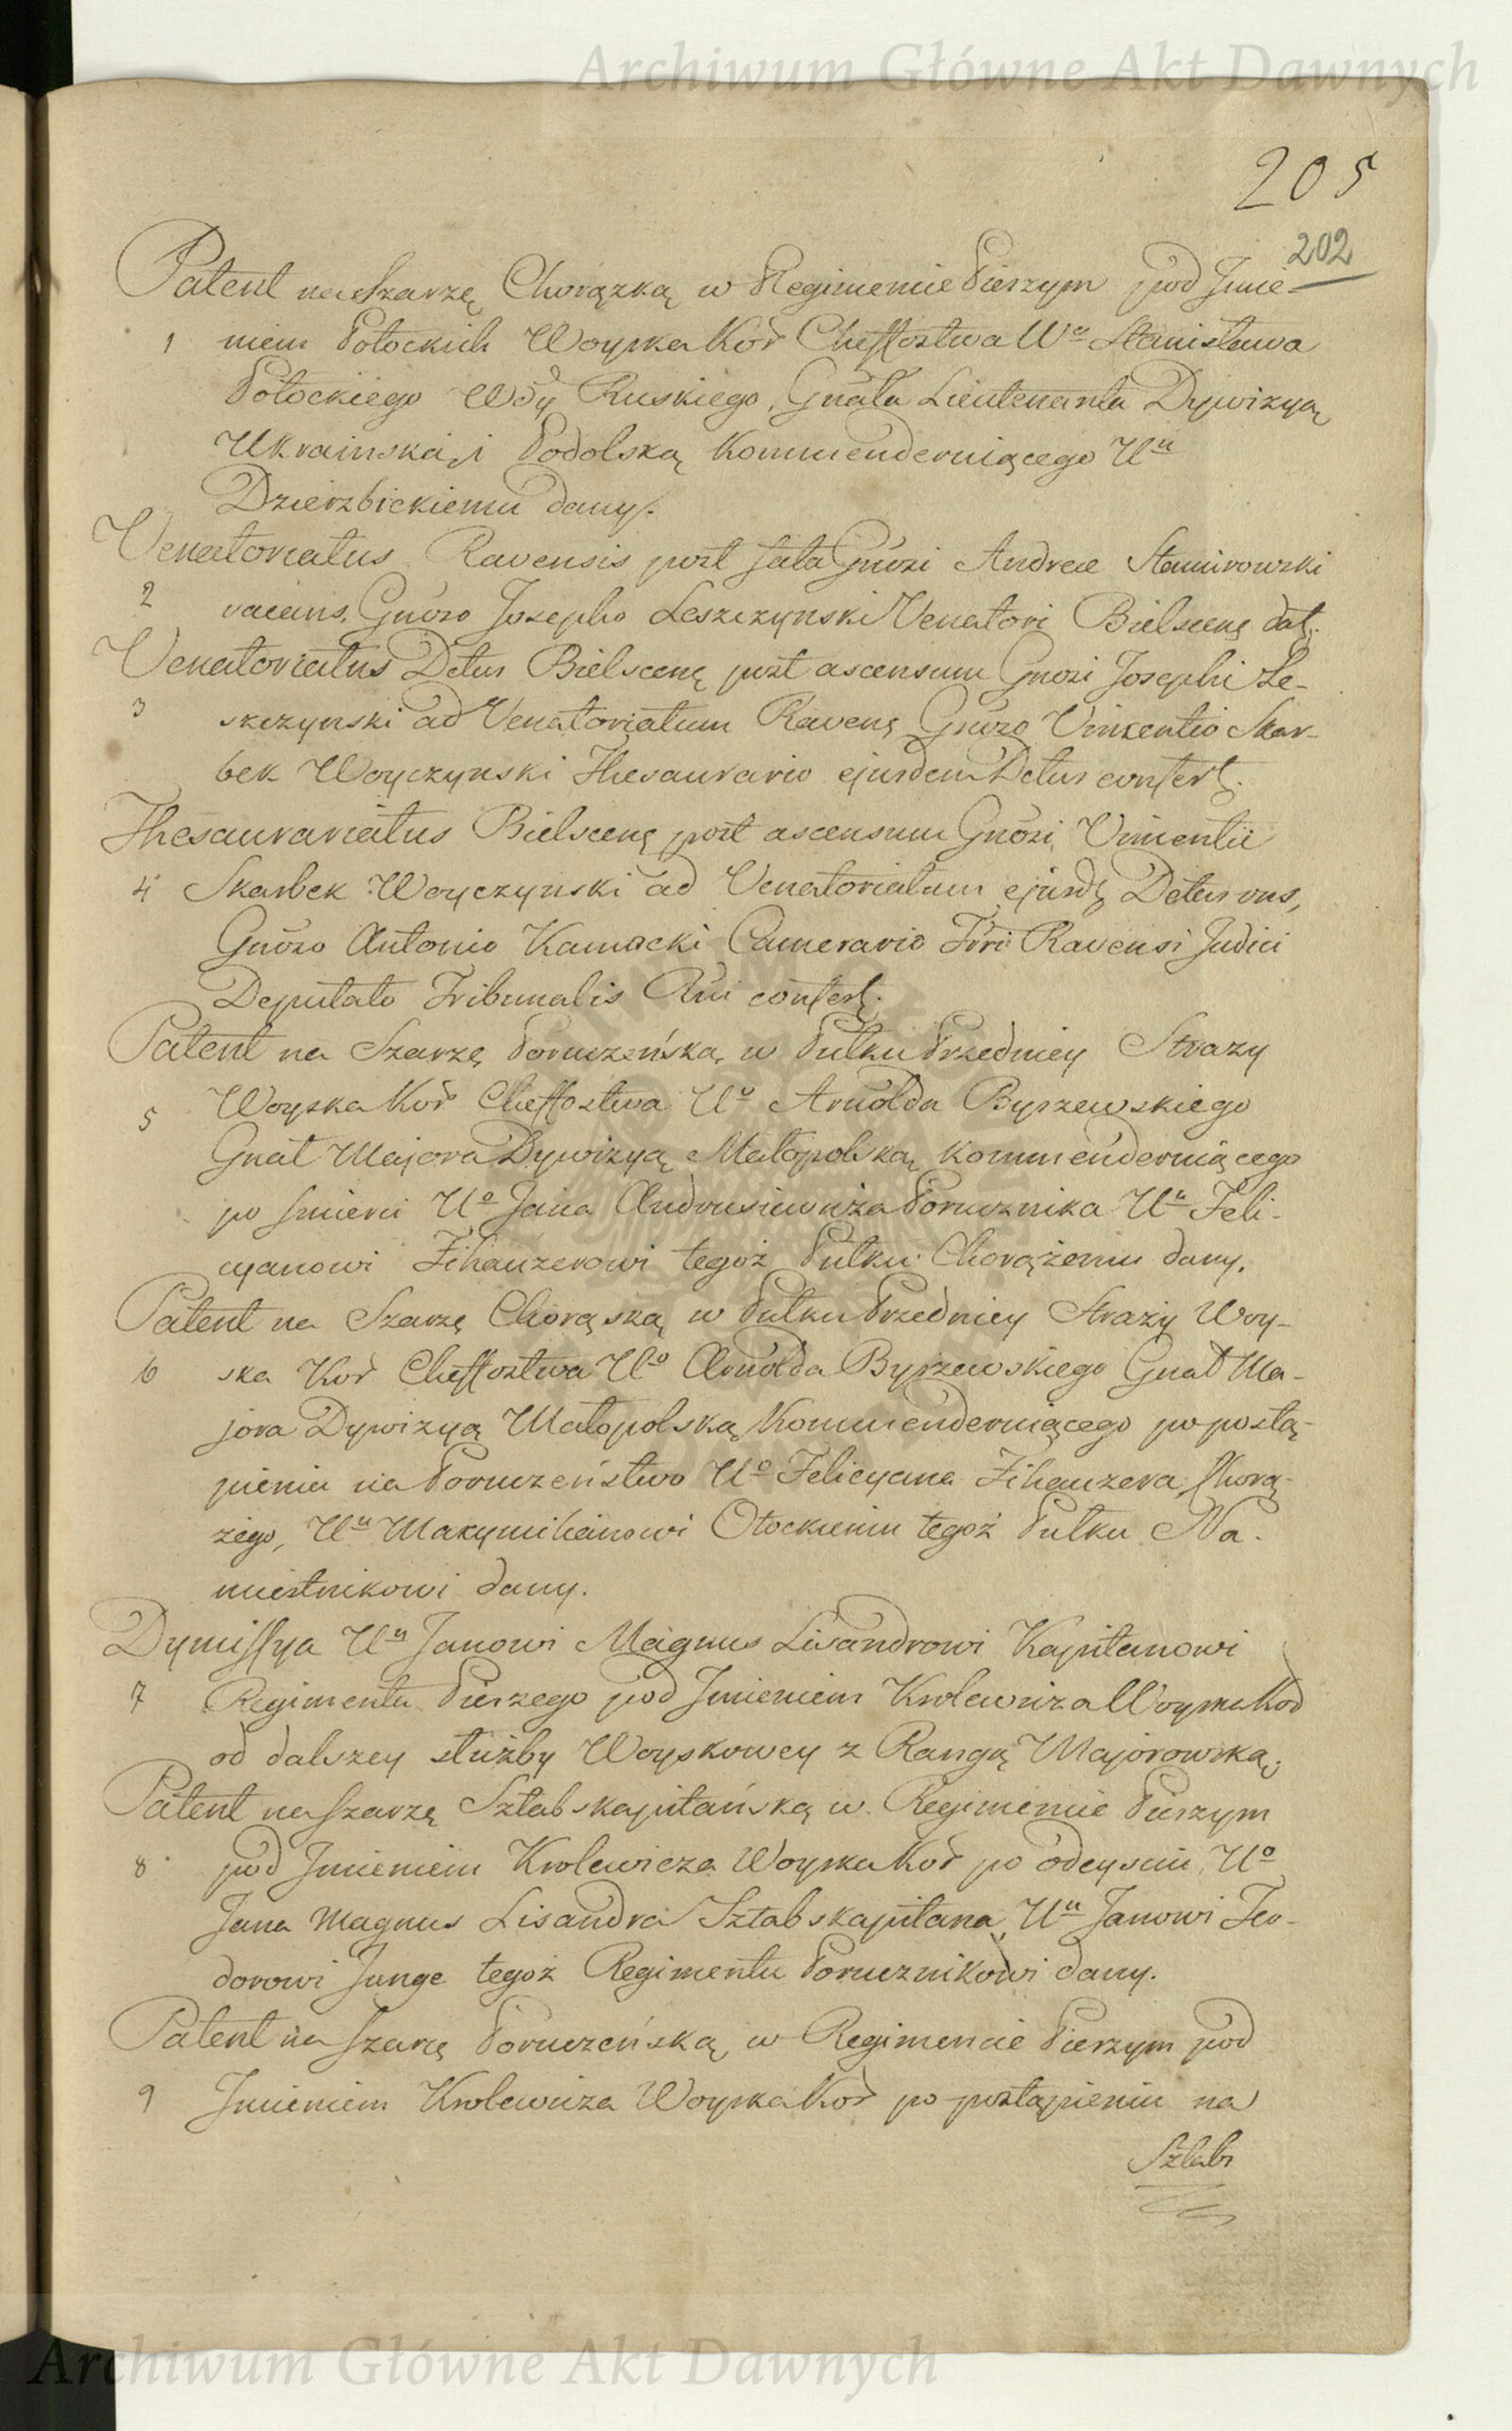 Archiwum Główne Akt Dawnych
205
202
Patent na Szarzę Chorązką w Regimencie Pieszym pod Jmie-
1 niem Potockich Woyska Kor̄ Cheffostwa Wº Stanisława
Potockiego Wdy Ruskiego, Gnała Lieutenanta Dywizyą
Ukrainską i Podolską Kommenderuiącego Uu
Dzierzbickiemu dany.
Venatoriatus Ravensis post fata Gnosi Andreae Stamirowski
2 vacans, Gnoso Josepho Leszczynski Venatori Bielscenę dat.
Venatoriatus Dctus Bielscenę post ascensum Gnosi Josephi Le-
3 szczynski ad Venatoriatum Ravenę Gnoso Vinzentio Skar-
bek Woyczynski Thesaurario ejusdem Dctus confert.
Thesaurariatus Bielscenę post ascensum Gnosi Vincentii
4 Skarbek Woyczynski ad Venatoriatum ejusdę Dctus vns,
Gnoso Antonio Kamocki Camerario Trri Ravensi Judici
Deputato Tribunalis Rni confert.
Patent na Szarzę Poruczeńską w Pułku Przedniey Strazy
5 Woyska Kor̄ Cheffostwa Uº Arnolda Byszewskiego
Gnał Majora Dywizyą Małopolską kommenderuiącego
po smierci Uº Jana Andrusiewicza Porucznika Uu Feli-
cyanowi Zihauzerowi tegoż Pułku Chorążemu dany.
Patent na Szarzę Chorąską w Pułku Przedniey Straży Woy-
6 ska Kor̄ Cheffostwa Uº Arnolda Byszewskiego Gnał Ma-
jora Dywizyą Małopolską Kommenderuiącego po postą-
pieniu na Poruczeństwo Uº Felicyana Zihauzera Chorą-
żego, Uu Maxymilianowi Otockiemu tegoż Pułku Na-
miestnikowi dany.
Dymissya Uu Janowi Magnus Lisandrowi Kapitanowi
7 Regimentu Pieszego pod Jmieniem Krolewicza Woyska Kor̄
od dalszey służby Woyskowey z Rangą Majorowską.
Patent na Szarzę Sztabskapitańską w Regimencie Pieszym
8 pod Jmieniem Krolewicza Woyska Kor̄ po odeysciu Uº
Jana Magnus Lisandra Sztabskapitana, Uu Janowi Teo-
dorowi Junge tegoż Regimentu Porucznikowi dany.
Patent na Szarżę Poruczeńską w Regimencie Pieszym pod
9 Jmieniem Krolewicza Woyska Kor̄ po postąpieniu na
Sztabs
Archiwum Główne Akt Dawnych